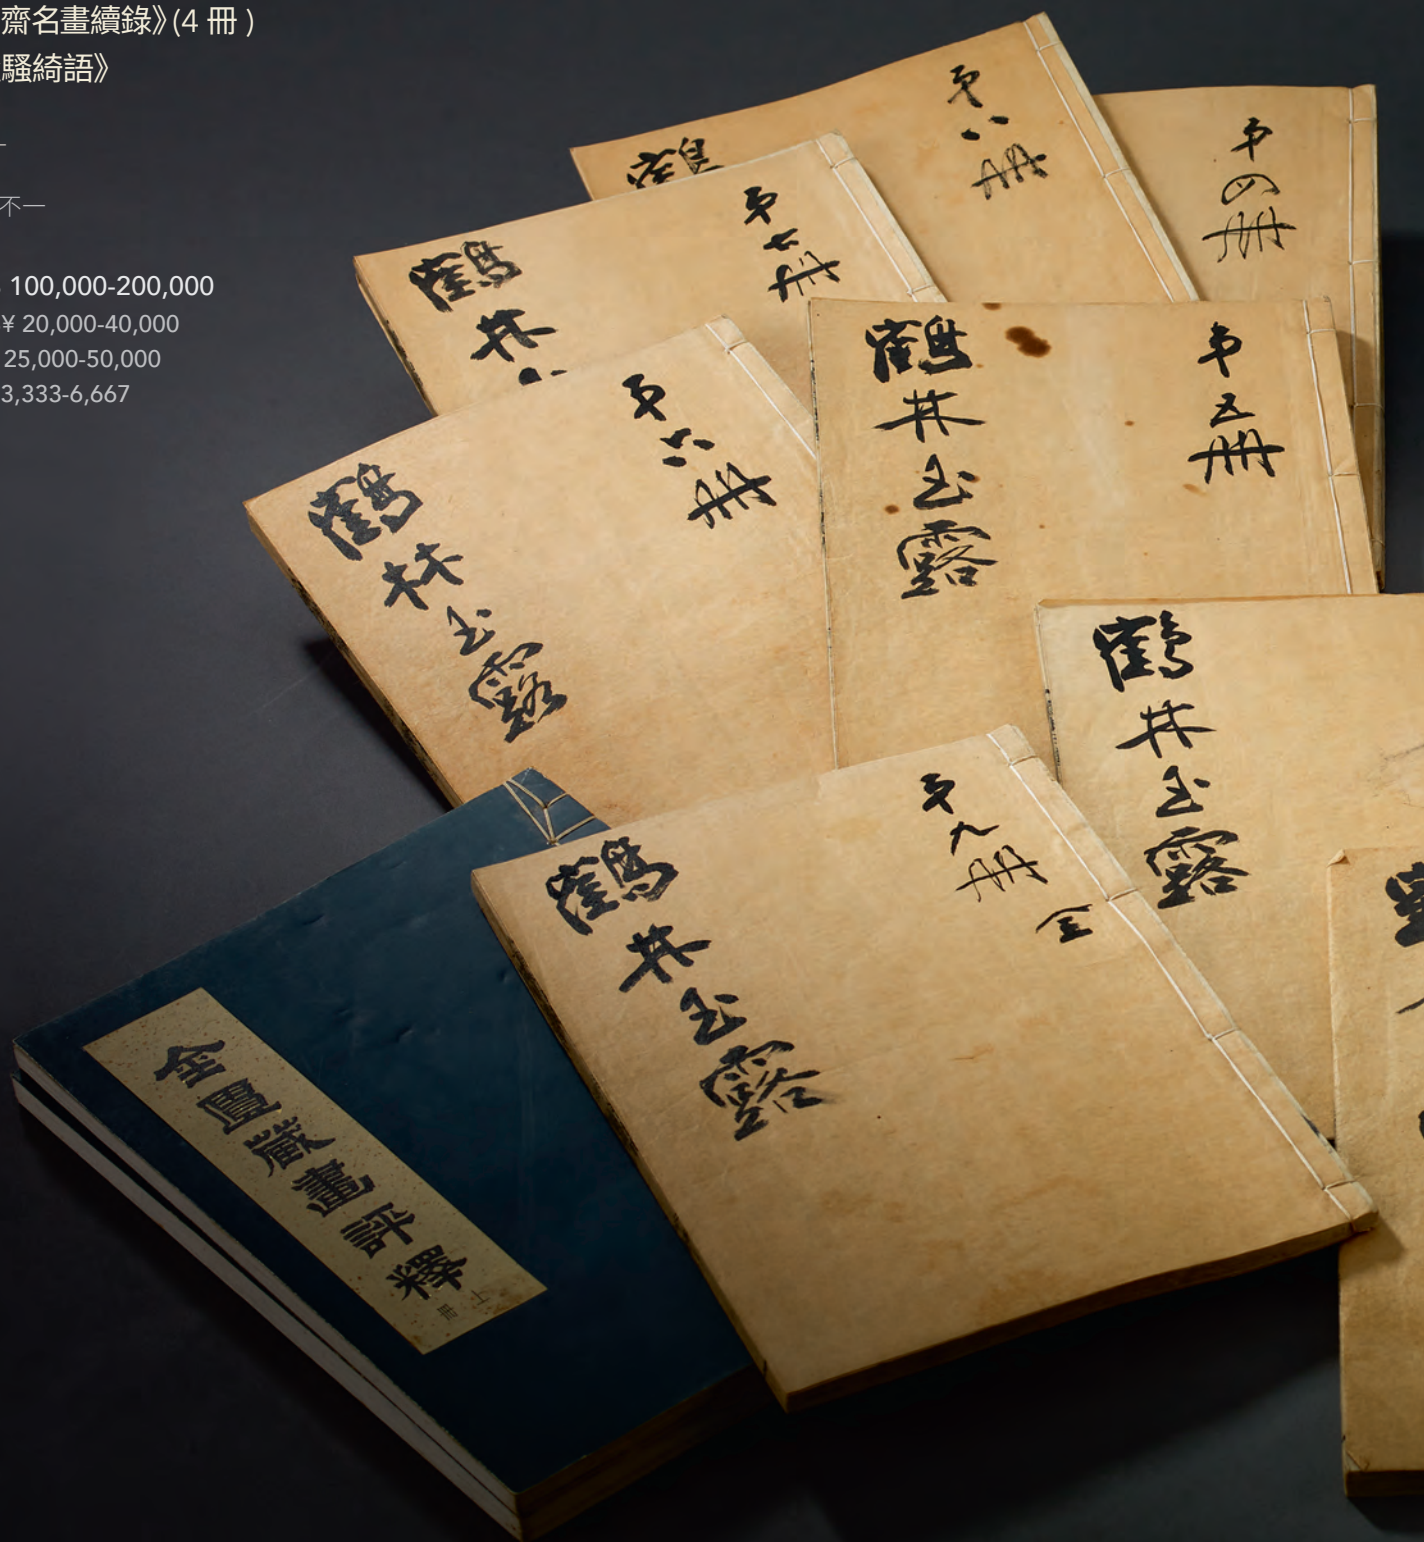 齋名畫續錄》(4 冊 )
騷綺語》
不一
100,000-200,000
¥ 20,000-40,000
25,000-50,000
3,333-6,667
第八冊
鶴
第四冊
第七冊
鶴林
第五冊
鶴林玉露
第六冊
鶴林玉露
鶴林玉露
第九冊
全
鶴林玉露
金匱藏畫評釋
上冊